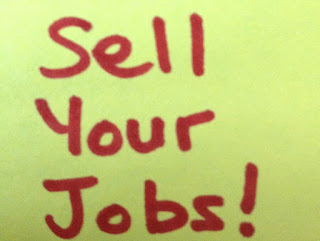 Sell
Your
Jobs!